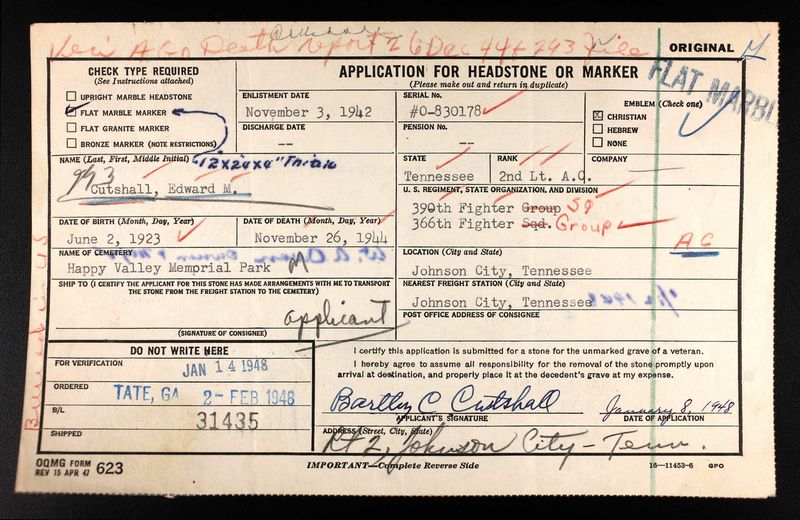 Cutshall
Veri AGO Death report 26 Dec 44 293 File
ORIGINAL
CHECK TYPE REQUIRED
(See Instructions attached)
UPRIGHT MARBLE HEADSTONE
FLAT MARBLE MARKER
FLAT GRANITE MARKER
BRONZE MARKER (NOTE RESTRICTIONS)
12x24x4" Thick
ENLISTMENT DATE
November 3, 1942
DISCHARGE DATE
--
APPLICATION FOR HEADSTONE OR MARKER
(Please make out and return in duplicate)
FLAT MARBL
SERIAL No.
#O-830178
PENSION No.
--
EMBLEM (Check one)
☒ CHRISTIAN
HEBREW
NONE
NAME (Last, First, Middle Initial)
Cutshall, Edward M.
STATE
Tennessee
RANK
2nd Lt. A.C.
COMPANY
--
U. S. REGIMENT, STATE ORGANIZATION, AND DIVISION
390th Fighter Group Sq
366th Fighter Sqd. Group
AC
DATE OF BIRTH (Month, Day, Year)
June 2, 1923
DATE OF DEATH (Month, Day, Year)
November 26, 1944
NAME OF CEMETERY
Happy Valley Memprial Park M
LOCATION (City and State)
Johnson City, Tennessee
SHIP TO (I CERTIFY THE APPLICANT FOR THIS STONE HAS MADE ARRANGEMENTS WITH ME TO TRANSPORT
THE STONE FROM THE FREIGHT STATION TO THE CEMETERY)
applicant
(SIGNATURE OF CONSIGNEE)
NEAREST FREIGHT STATION (City and State)
Johnson City, Tennessee
POST OFFICE ADDRESS OF CONSIGNEE
DO NOT WRITE HERE
FOR VERIFICATION
JAN 14 1948
ORDERED
TATE, GA 2 - FEB 1948
B/L
31435
SHIPPED
I certify this application is submitted for a stone for the unmarked grave of a veteran.
I hereby agree to assume all responsibility for the removal of the stone promptly upon
arrival at destination, and properly place it at the decedent's grave at my expense.
Bartley C Cutshall
January 8, 1948
APPLICANT'S SIGNATURE
DATE OF APPLICATION
ADDRESS (Street, City, State)
Rt 2, Johnson City - Tenn.
OQMG FORM
REV 15 APR 47
623
IMPORTANT—Complete Reverse Side
16—11453-6 GPO